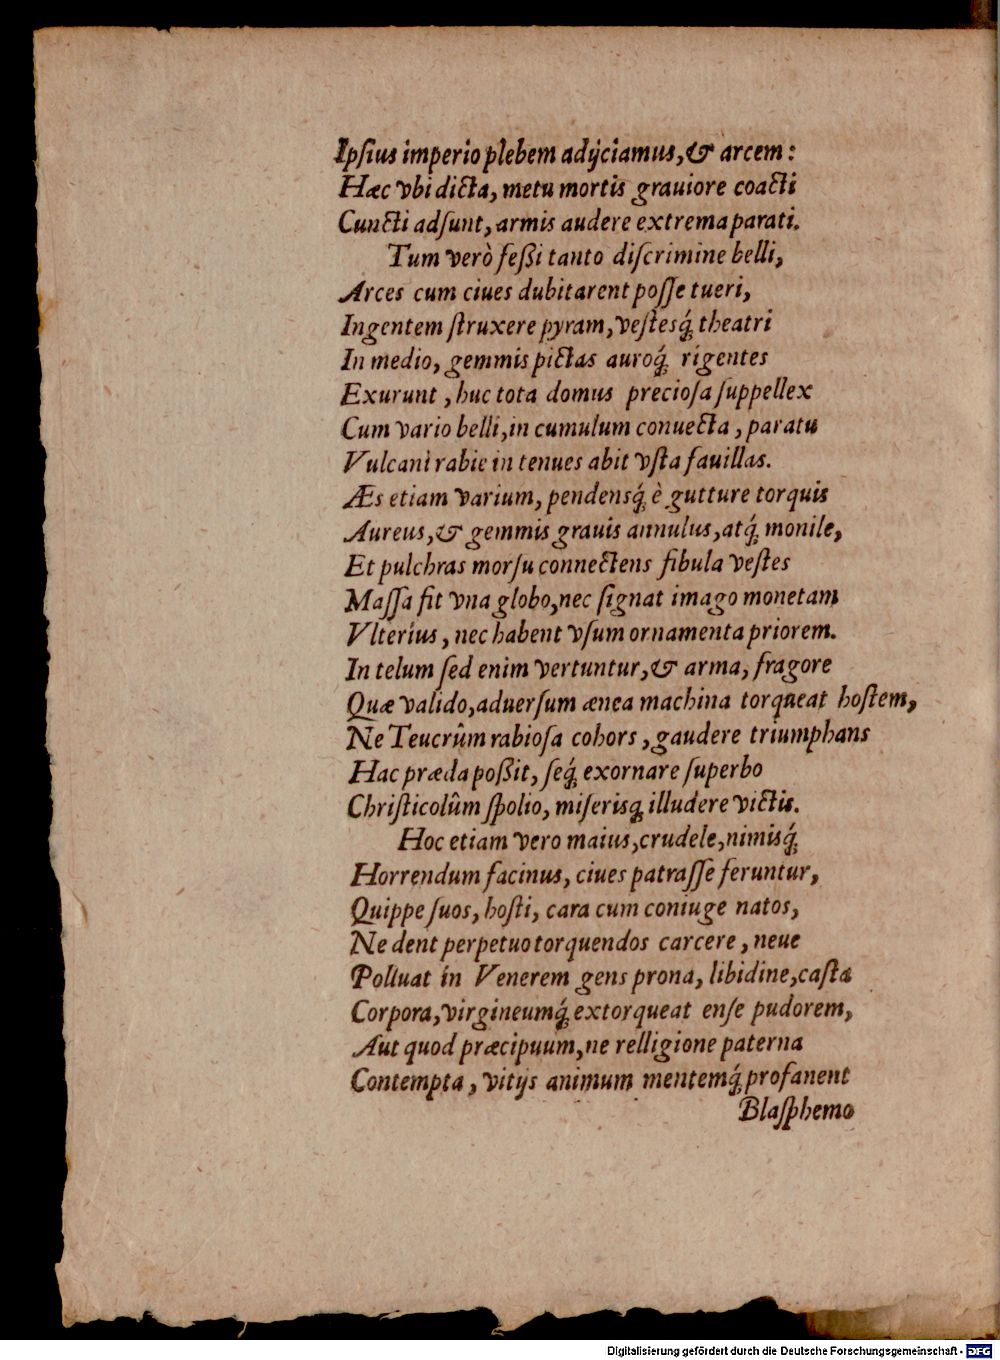 Ipſius imperio plebem adijciamus, & arcem:
Hæc vbi dicta, metu mortis grauiore coacti
Cuncti adſunt, armis audere extrema parati.
Tum verò feßi tanto diſcrimine belli,
Arces cum ciues dubitarent poſſe tueri,
Ingentem ſtruxere pyram, veſtesq́; theatri
In medio, gemmis pictas auroq́; rigentes
Exurunt, huc tota domus precioſa ſuppellex
Cum vario belli, in cumulum conuecta, paratu
Vulcani rabie in tenues abit vſta fauillas.
Æs etiam varium, pendensq́; è gutture torquis
Aureus, & gemmis grauis annulus, atq́; monile,
Et pulchras morſu connectens fibula veſtes
Maſſa fit vna globo, nec ſignat imago monetam
Vlterius, nec habent vſum ornamenta priorem.
In telum ſed enim vertuntur, & arma, fragore
Quæ valido, aduerſum ænea machina torqueat hoſtem,
Ne Teucrûm rabioſa cohors, gaudere triumphans
Hac præda poßit, ſeq́; exornare ſuperbo
Chriſticolûm ſpolio, miſerisq; illudere victis.
Hoc etiam vero maius, crudele, nimisq́;
Horrendum facinus, ciues patraſſe feruntur,
Quippe ſuos, hoſti, cara cum coniuge natos,
Ne dent perpetuo torquendos carcere, neue
Polluat in Venerem gens prona, libidine, caſta
Corpora, virgineumq́; extorqueat enſe pudorem,
Aut quod præcipuum, ne relligione paterna
Contempta, vitijs animum mentemq́; profanent
Blaſphemo
Digitalisierung gefördert durch die Deutsche Forschungsgemeinschaft - DFG